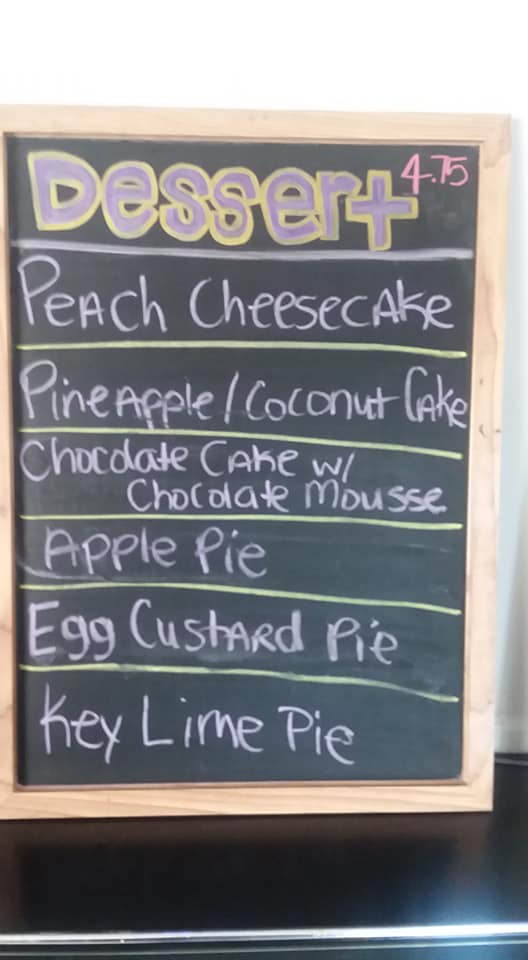 Dessert 4.75
Peach Cheesecake
Pineapple/Coconut Cake
Chocolate Cake w/
Chocolate Mousse
Apple Pie
Egg Custard Pie
Key Lime Pie